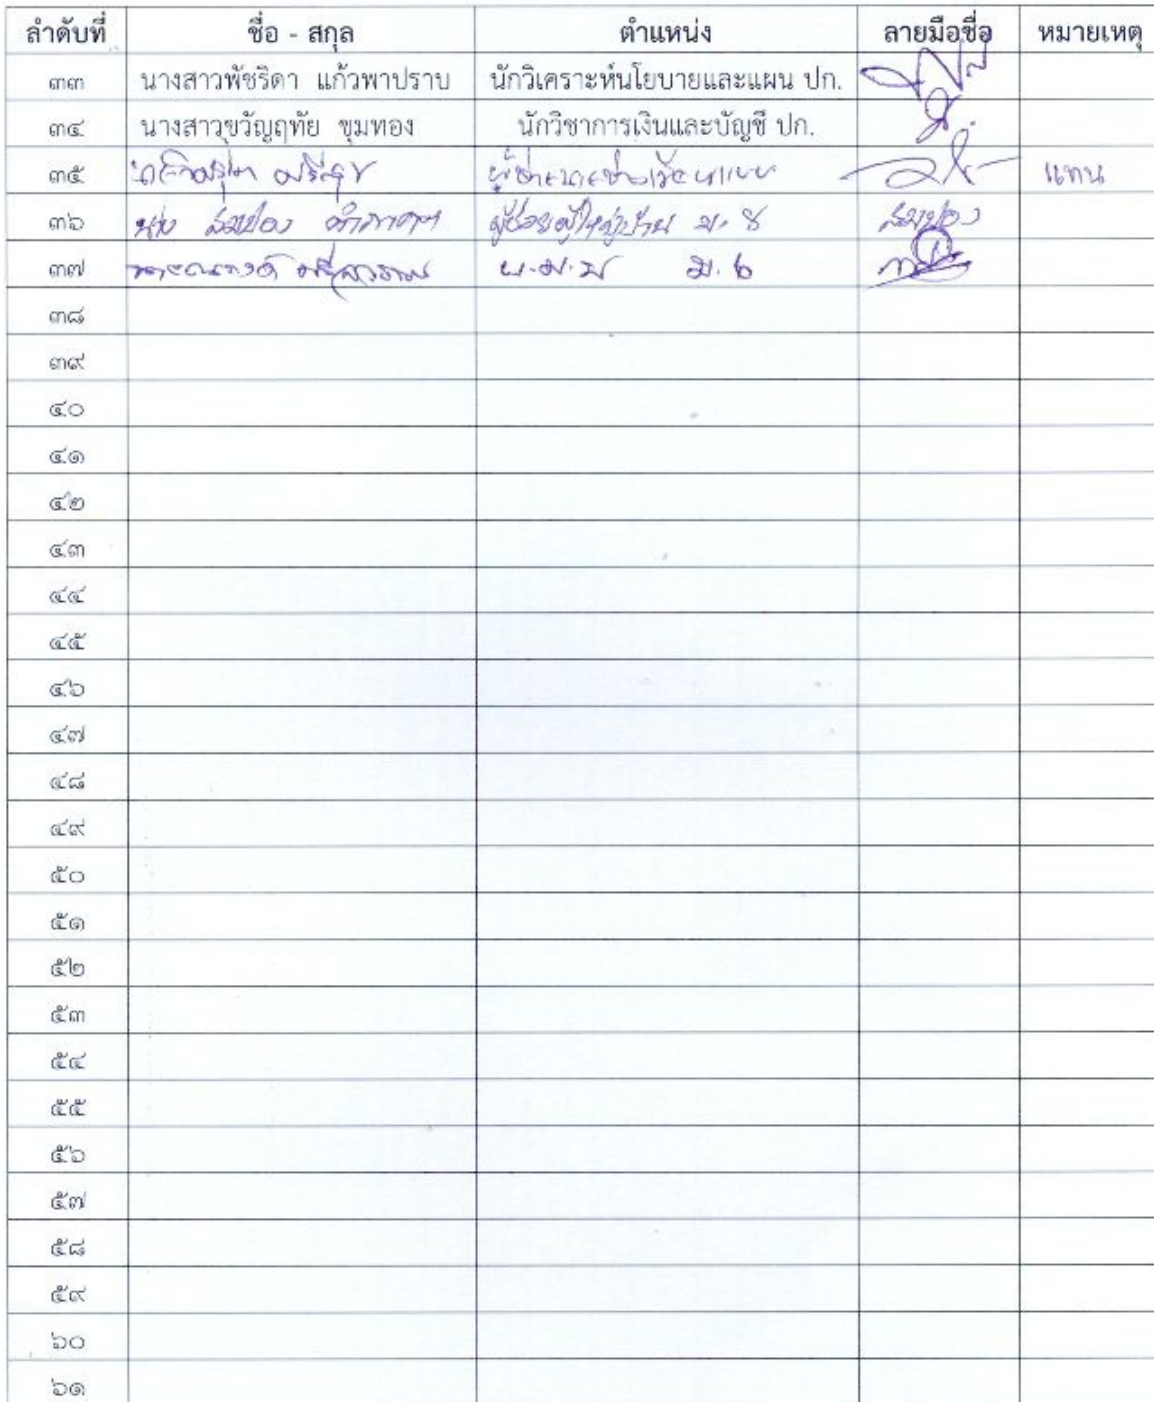 ลำดับที่ ชื่อ - สกุล ตำแหน่ง ลายมือชื่อ หมายเหตุ
๓๓ นางสาวพัชริดา แก้วพาปราบ นักวิเคราะห์นโยบายและแผน ปก.
๓๔ นางสาวขวัญฤทัย ขุมทอง นักวิชาการเงินและบัญชี ปก.
๓๕ แทน
๓๖ สมปอง ผู้ช่วยผู้ใหญ่บ้าน ม. ๕ สมปอง
๓๗ ม. ๖
๓๘
๓๙
๔๐
๔๑
๔๒
๔๓
๔๔
๔๕
๔๖
๔๗
๔๘
๔๙
๕๐
๕๑
๕๒
๕๓
๕๔
๕๕
๕๖
๕๗
๕๘
๕๙
๖๐
๖๑